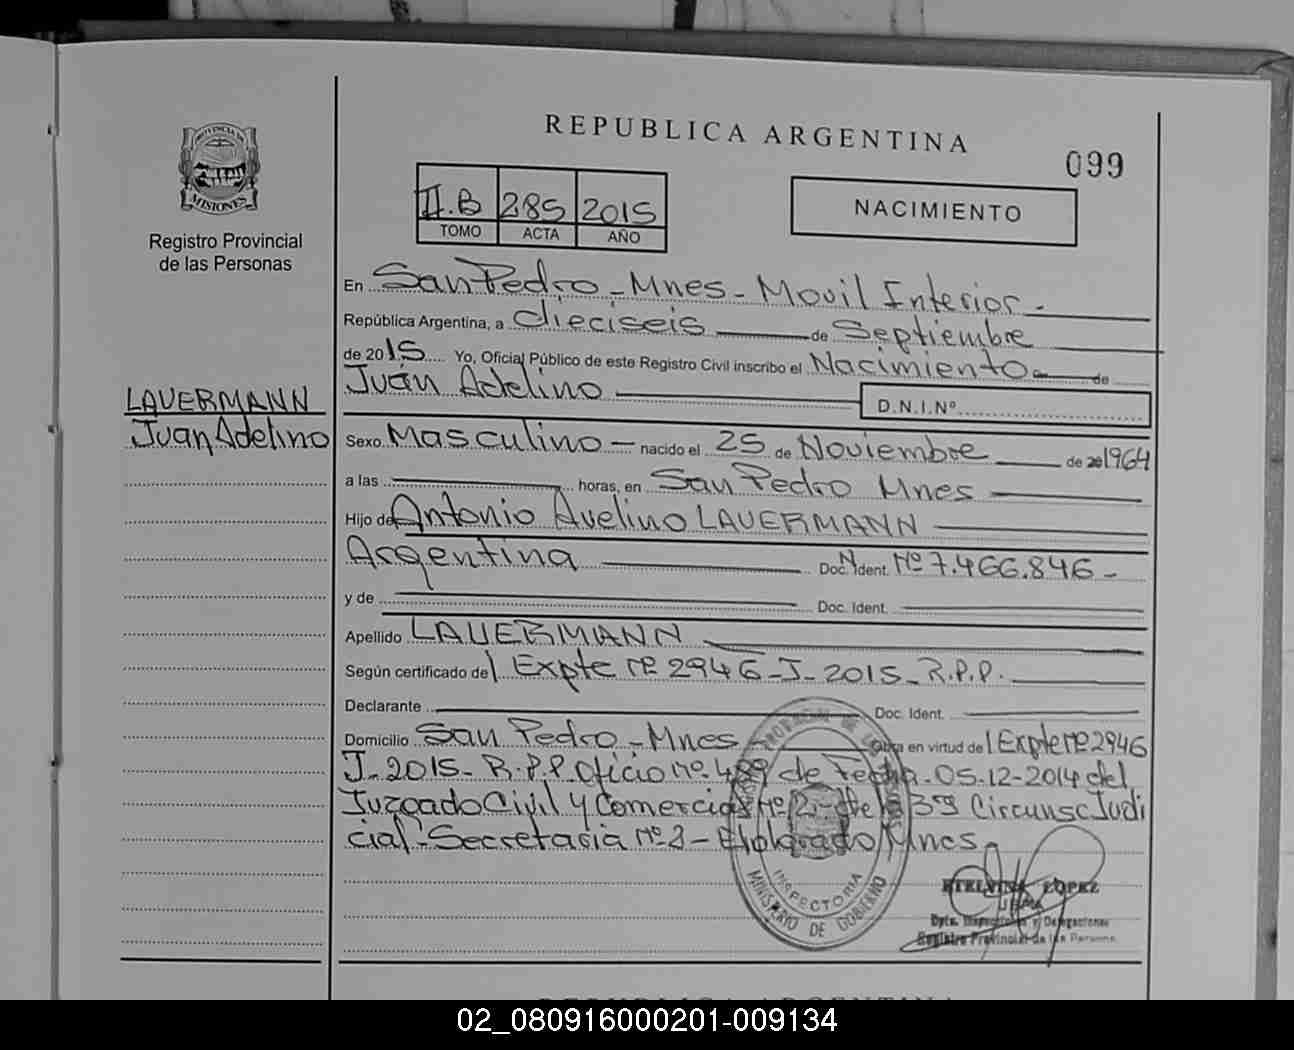 REPUBLICA ARGENTINA
099
PROVINCIA DE
MISIONES
Registro Provincial
de las Personas
II.B 285 2015
TOMO ACTA AÑO
NACIMIENTO
En San Pedro - Mnes - Movil Interior -
República Argentina, a dieciseis de Septiembre
de 2015 Yo, Oficial Público de este Registro Civil inscribo el Nacimiento de
Juán Adelino
D.N.I.Nº
LAUERMANN
Juan Adelino
Sexo Masculino - nacido el 25 de Noviembre de 1964
a las horas, en San Pedro Mnes
Hijo de Antonio Avelino LAUERMANN
Argentina Doc. Ident. M Nº 7.466.846 -
y de Doc. Ident.
Apellido LAUERMANN
Según certificado de Expte Nº 2946 - J - 2015 - R.P.P.
Declarante Doc. Ident.
Domicilio San Pedro - Mnes - Obra en virtud de Expte Nº 2946
J - 2015 - R.P.P. Oficio nº 489 de Fecha - 05-12-2014 del
Juzgado Civil y Comercial Nº 2 - de la 3ª Circunsc Judi
cial - Secretaria Nº 2 - Eldorado Mnes -
INSPECTORIA
MINISTERIO DE GOBIERNO
ETELVINA LOPEZ
Dpto. Inspecciones y Delegaciones
Registro Provincial de las Personas
REPUBLICA ARGENTINA
02_080916000201-009134